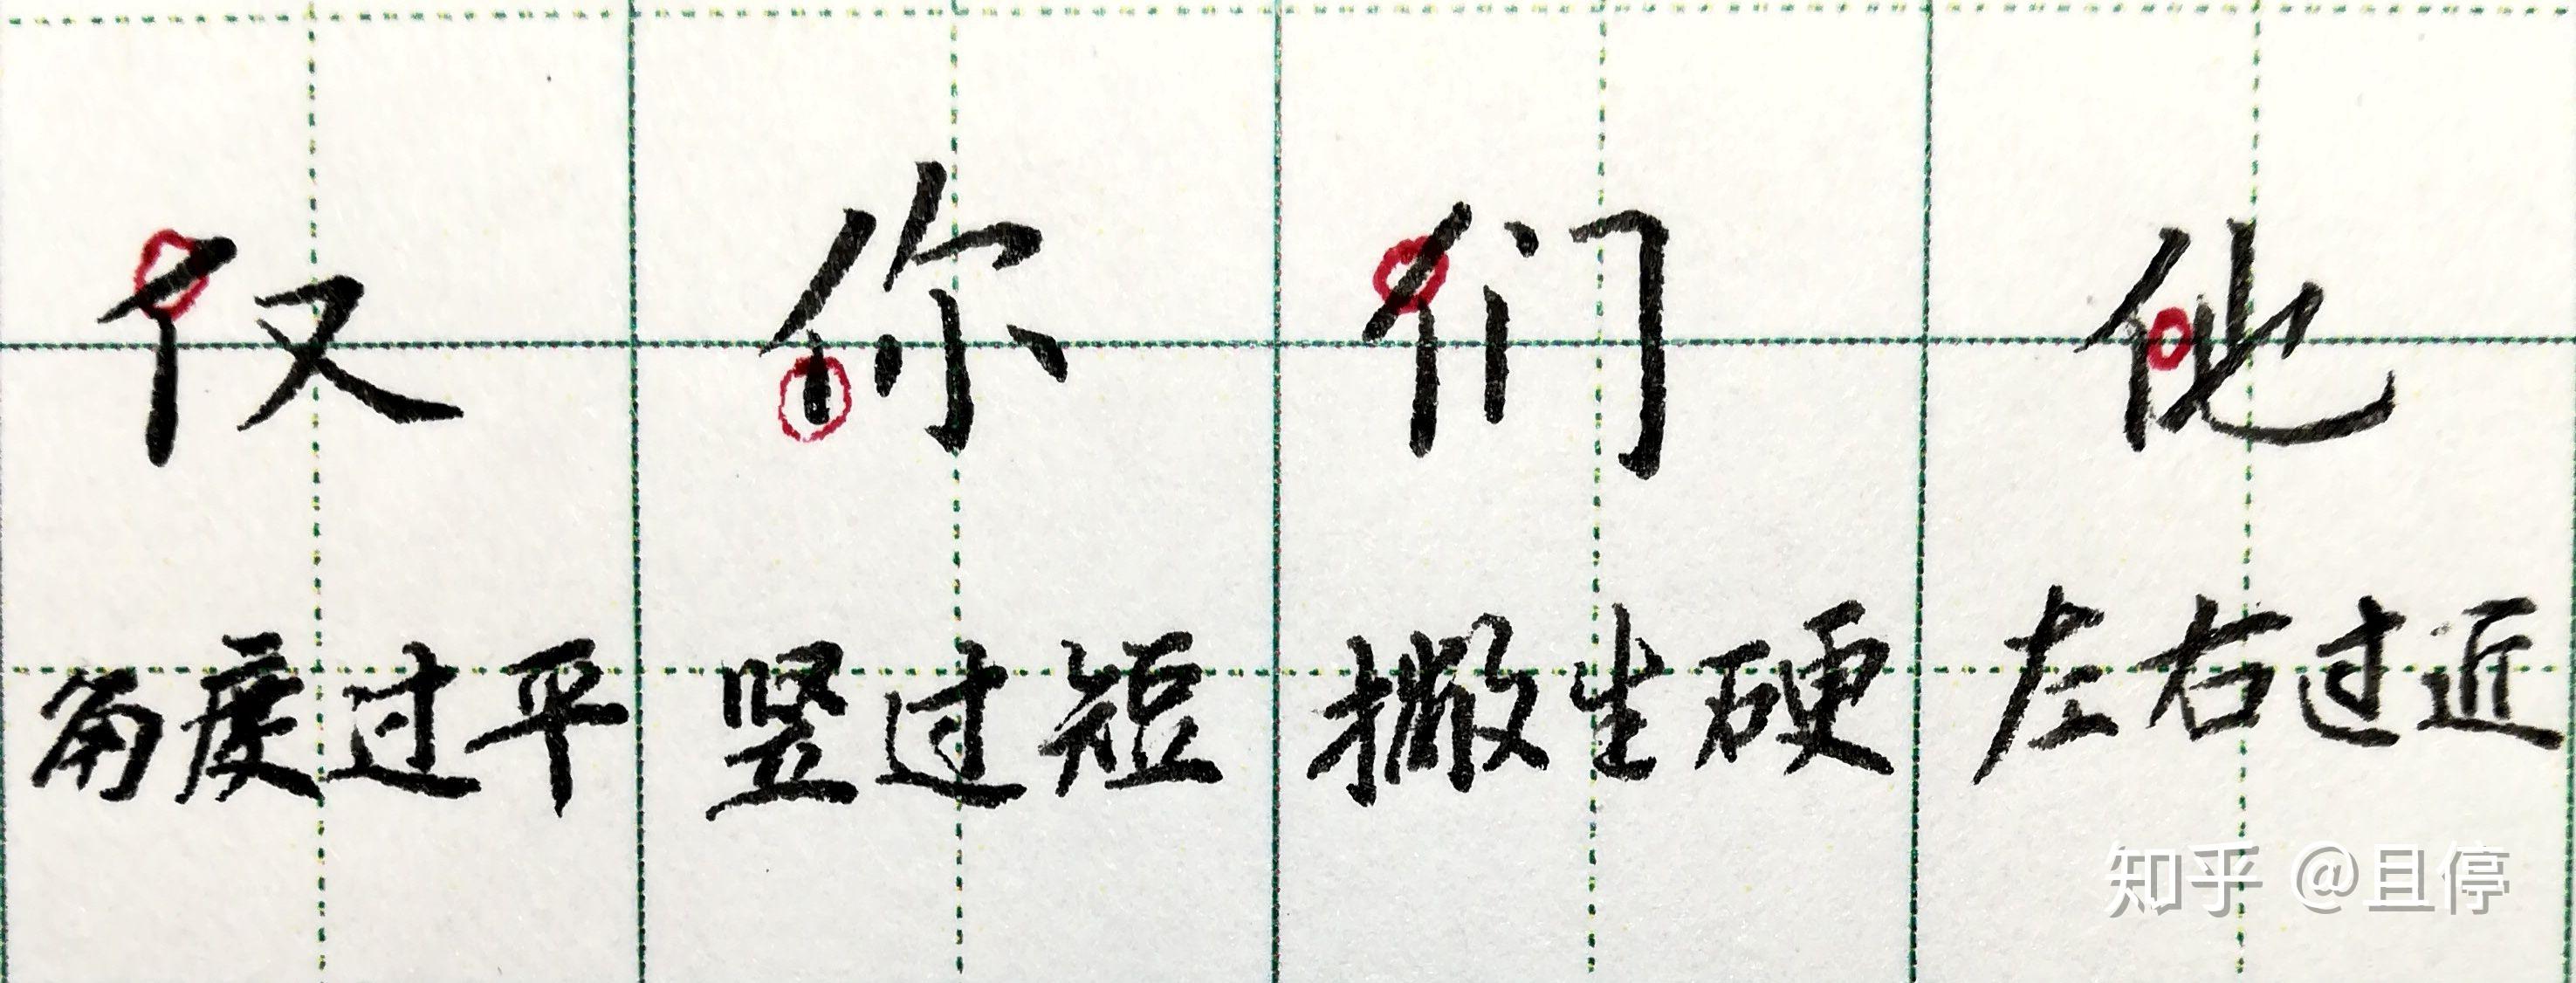 仅 你 们 他
角度过平 竖过短 撇生硬 左右过近
知乎 @且停